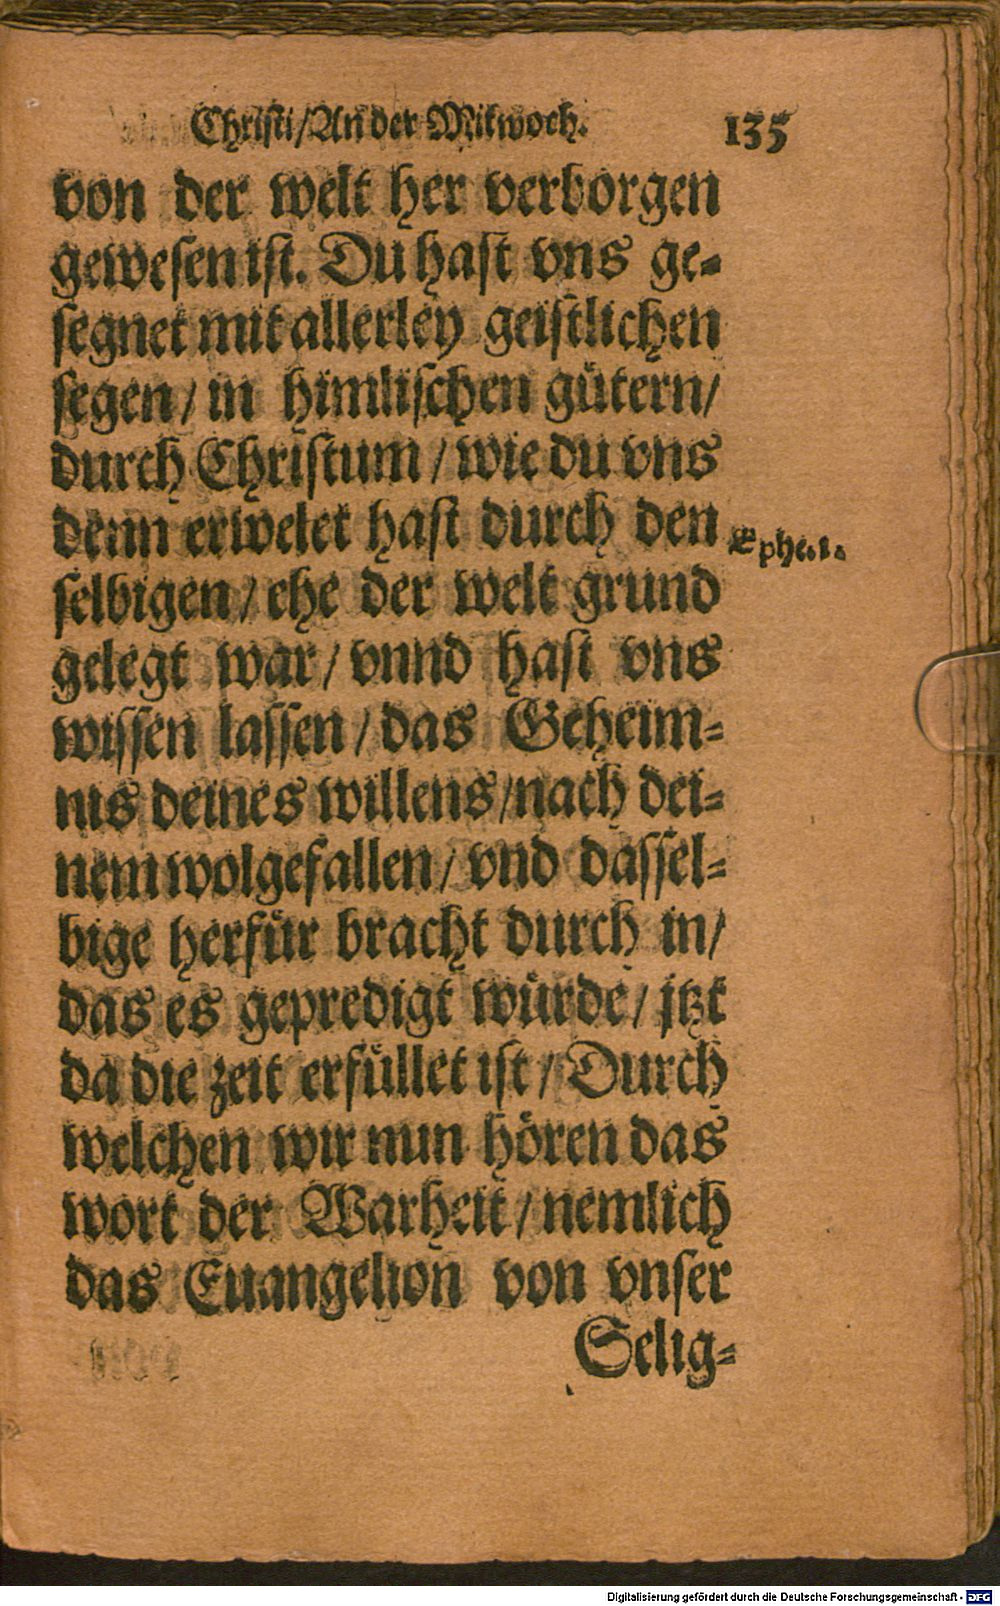 Christi/An der Mitwoch. 135
von der welt her verborgen
gewesen ist. Du hast vns ge-
segnet mit allerley geistlichen
segen/ in himlischen gütern/
durch Christum/ wie du vns
denn erwelet hast durch den
Ephe.1.
selbigen/ ehe der welt grund
gelegt war/ vnnd hast vns
wissen lassen/ das Geheim-
nis deines willens/nach dei-
nem wolgefallen/ vnd dassel-
bige herfür bracht durch in/
das es gepredigt würde/ jtzt
da die zeit erfüllet ist/ Durch
welchen wir nun hören das
wort der Warheit/ nemlich
das Euangelion von vnser
Selig-
Digitalisierung gefördert durch die Deutsche Forschungsgemeinschaft - DFG